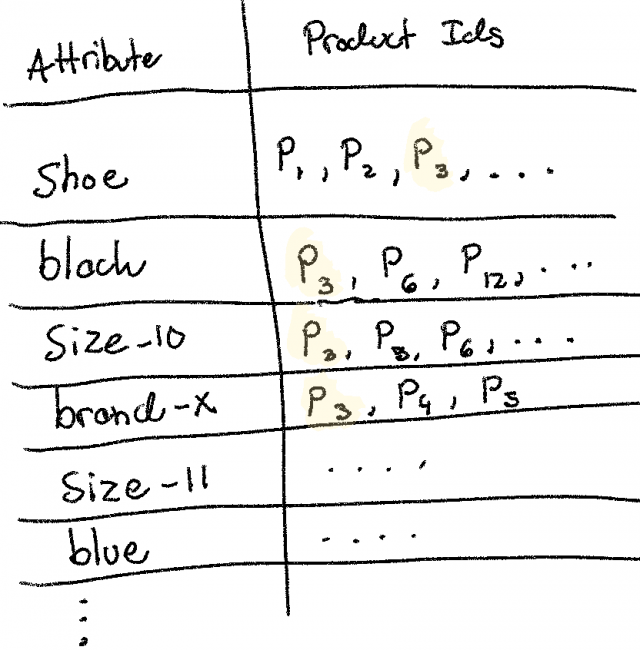 Attribute Product Ids
Shoe P1, P2, P3, ....
black P3, P6, P12, ...
Size-10 P3, P5, P6, ....
brand-x P3, P4, P5
Size-11 ....
blue ....